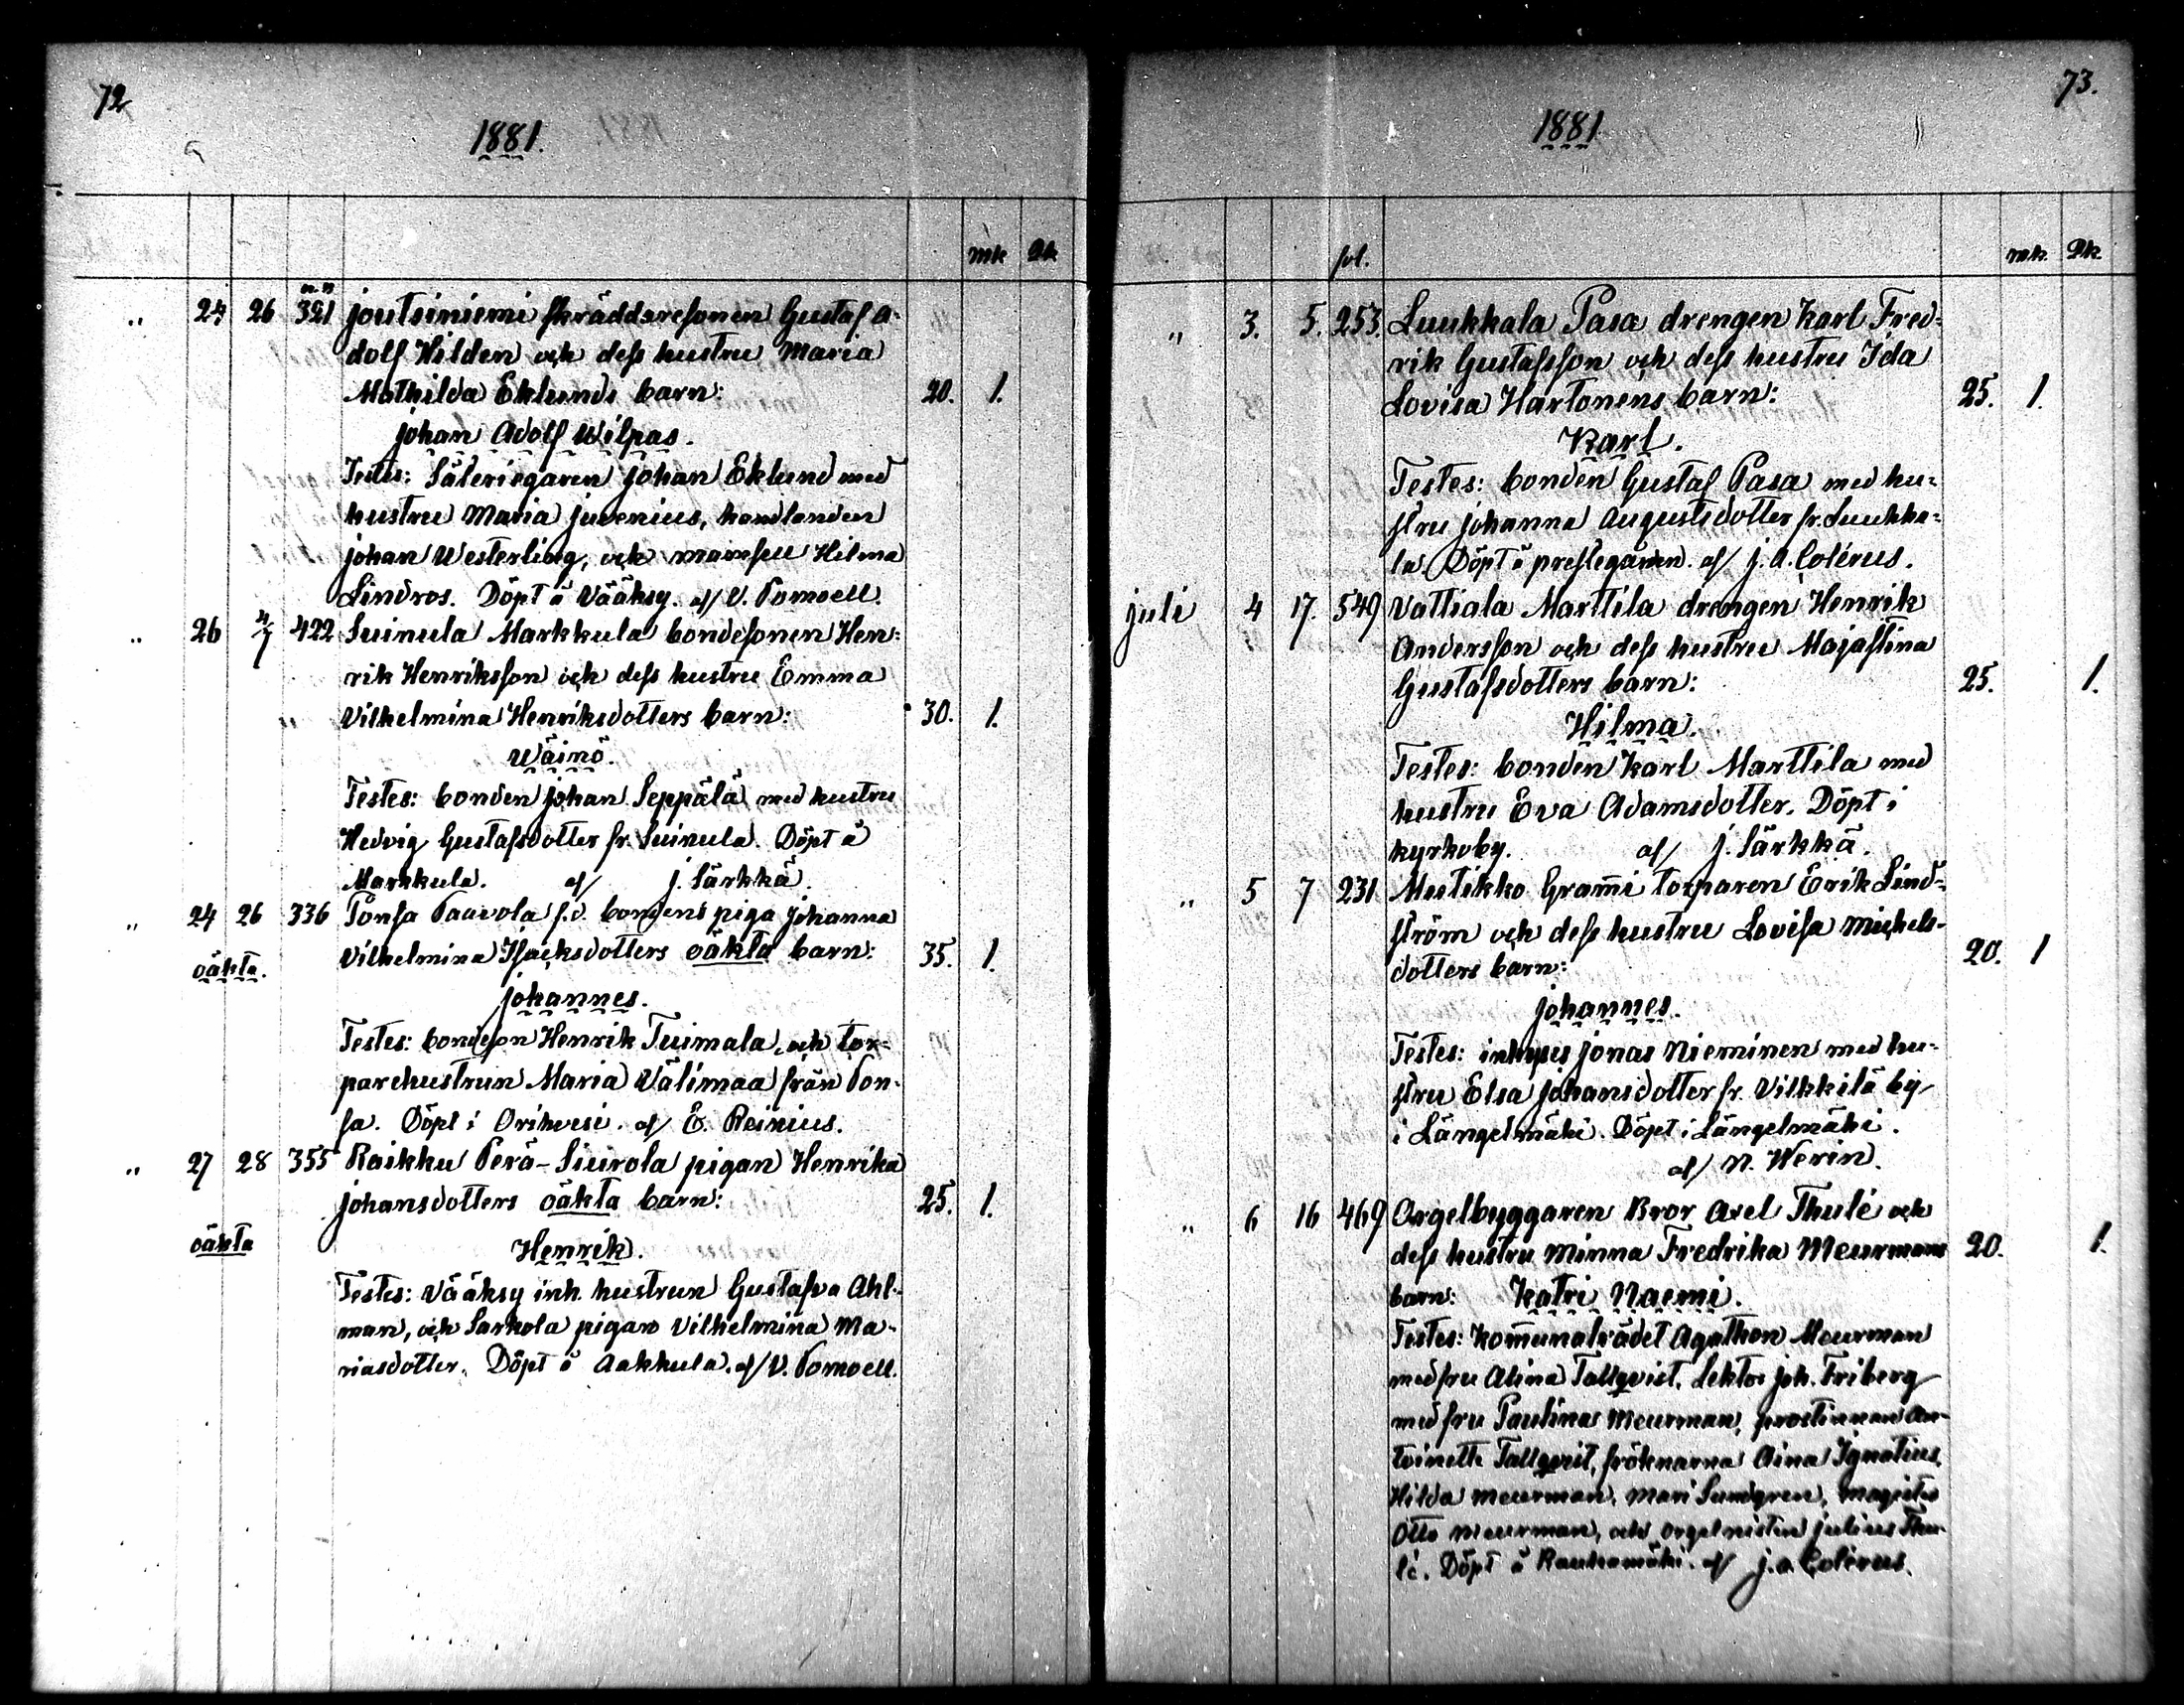 72
1881.
mk Qk
n.n
„ 24 26 321 Joutsiniemi skräddaresonen Gustaf A-
dolf Hilden och dess hustru Maria
Mathilda Eklunds barn: 20. 1.
Johan Adolf Wilpas.
Testes: Säteriegaren Johan Eklund med
hustru Maria Juvenius, handlanden
Johan Westerling, och mamsell Hilma
Lindros. Döpt å Vääksy. af V. Pomoell.
„ 26 4/7 422 Suinula Markkula bondesonen Hen-
rik Henriksson och dess hustru Emma
Vilhelmina Henriksdotters barn: 30. 1.
Wäinö.
Testes: bonden Johan Seppälä med hustru
Hedvig Gustafsdotter fr. Suinula. Döpt å
Markkula. af J. Särkkä.
„ 24 26 336 Ponsa Paavola f.d. bondens piga Johanna
Vilhelmina Isacksdotters oäkta barn: 35. 1.
oäkta.
Johannes.
Testes: bondeson Henrik Tuimala, och tor-
parehustrun Maria Välimaa från Pon-
sa. Döpt i Orihvesi. af E. Reinius.
„ 27 28 355 Raikku Perä-Siurola pigan Henrika
Johansdotters oäkta barn: 25. 1.
oäkta
Henrik.
Testes: Vääksy inh. hustrun Gustafva Ahl-
man, och Sarkola pigan Vilhelmina Ma-
riasdotter. Döpt å Aakkula. af V. Pomoell.
73.
1881
fol. mk Qk
„ 3. 5. 253. Luukkala Pasa drengen Karl Fred-
rik Gustafsson och dess hustru Ida
Lovisa Hartonens barn: 25. 1.
Karl.
Testes: bonden Gustaf Pasa med hu-
stru Johanna Augustsdotter fr. Luukka-
la. Döpt å prestegården. af J. A. Colérus.
Juli 4 17. 549 Vattiala Marttila drengen Henrik
Andersson och dess hustru Majastina
Gustafsdotters barn: 25. 1.
Hilma.
Testes: bonden Karl Marttila med
hustru Eva Adamsdotter. Döpt i
kyrkoby. af J. Särkkä.
„ 5 7 231 Mustikko Grammi torparen Erik Lind-
ström och dess hustru Lovisa Michels-
dotters barn: 20. 1
Johannes.
Testes: inhyses Jonas Nieminen med hu-
stru Elsa Johansdotter fr. Vilkkilä by
i Längelmäki. Döpt i Längelmäki.
af N. Werin.
„ 6 16 469 Orgelbyggaren Bror Axel Thulé och
dess hustru Minna Fredrika Meurmans 20. 1.
barn: Katri Naemi.
Testes: Kommunalrådet Agathon Meurman
med fru Alina Tallqvist, Lektor Joh. Friberg
med fru Paulina Meurman, prostinnan An-
toinette Tallqvist, fröknarna Aina Ignatius,
Hilda Meurman, Mari Sundgren, magister
Otto Meurman, och orgelnisten Julius Thu-
lé. Döpt å Rauhamäki. af J. A. Colérus.